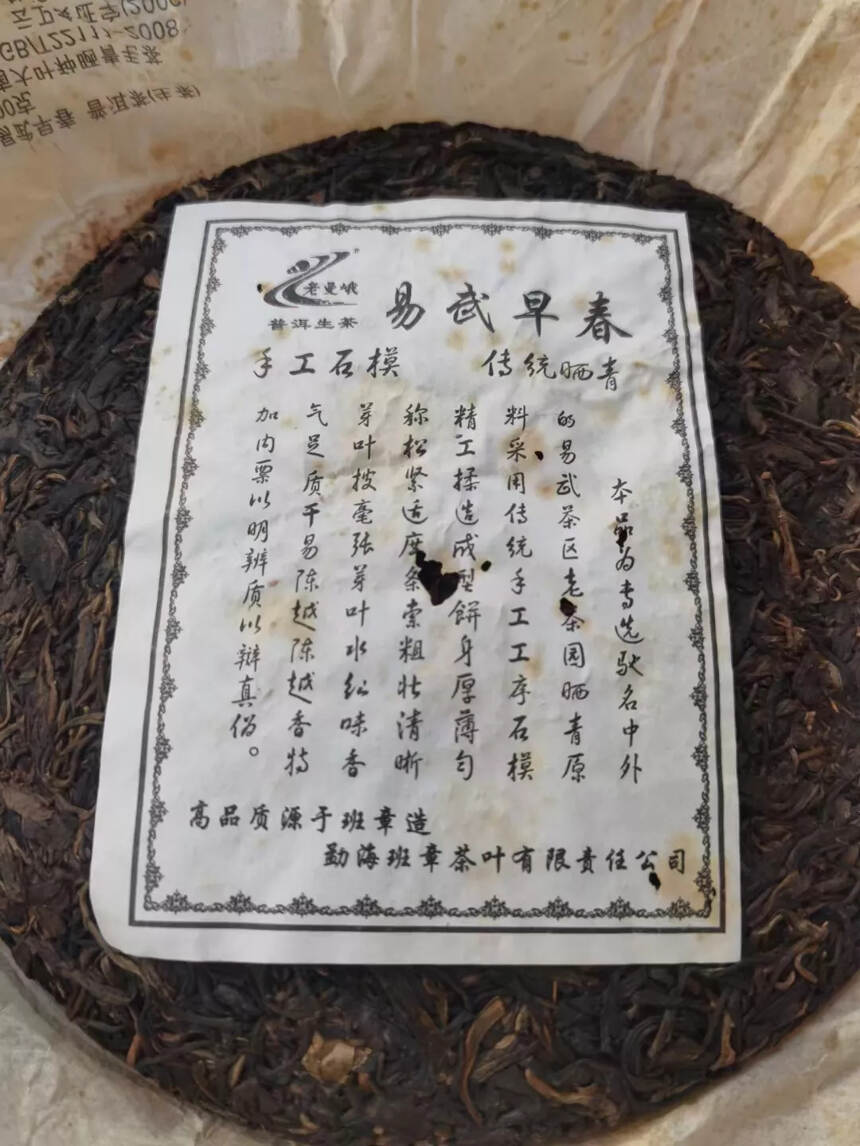 GB/T22111-2008
大叶种晒青毛茶
0克
早春 普洱茶(生茶)
老曼峨
®
普洱生茶
易武早春
手工石模 传统晒青
本品为专选驰名中外
的易武茶区老茶园晒青原
料采用传统手工工序石模
精工揉造成型餅身厚薄匀
称松紧适度条索粗壮清晰
芽叶披毫张芽叶水红味香
气足质干易陈越陈越香特
加内票以明辨质以辩真。
高品质源于班章造
勐海班章茶叶有限责任公司